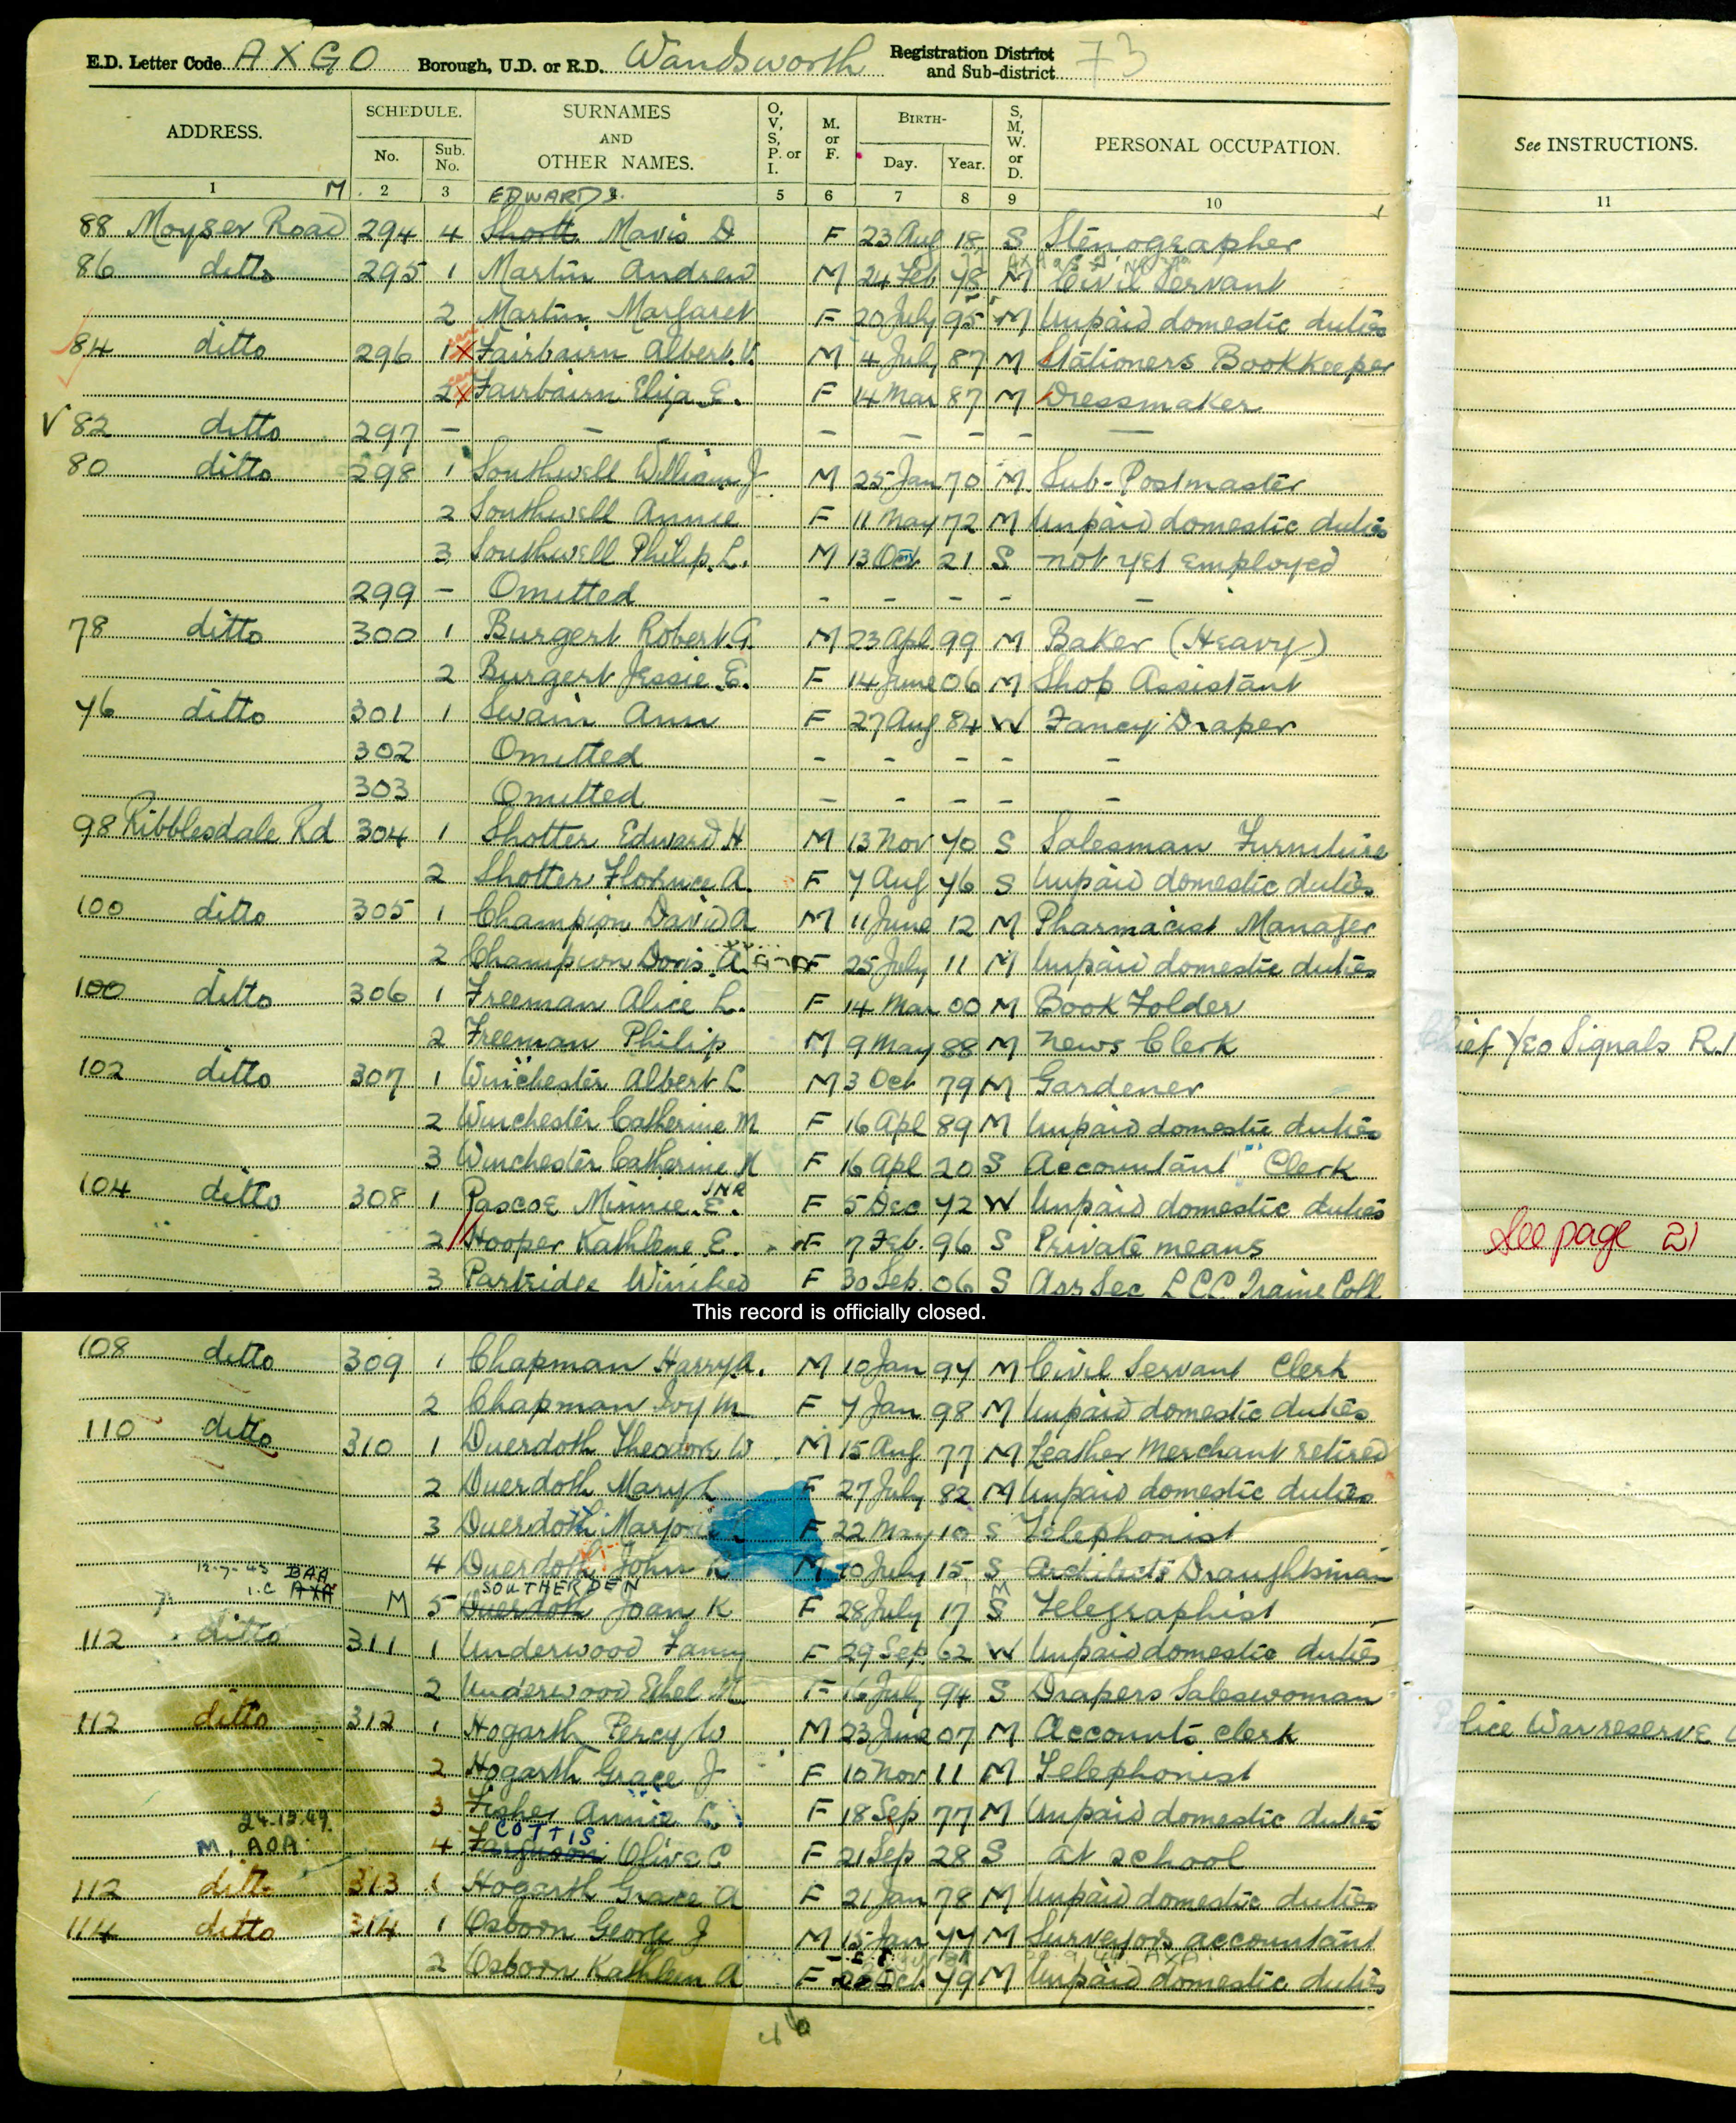 E.D. Letter Code A X G O Borough, U.D. or R.D. Wandsworth Registration District and Sub-district 73
ADDRESS. SCHEDULE. No. Sub. No. SURNAMES AND OTHER NAMES. O, V, S, P. or I. M. or F. BIRTH- Day. Year. S, M, W. or D. PERSONAL OCCUPATION. See INSTRUCTIONS.
1 M 2 3 5 6 7 8 9 10 11
EDWARDS
88 Moyser Road 294 4 Shott Mavis D F 23 Aug 18 S Stenographer
86 ditto 295 1 Martin Andrew M 24 Feb 98 M Civil Servant
2 Martin Margaret F 20 July 95 M Unpaid domestic duties
84 ditto 296 1 x Fairbairn Albert V. M 4 July 87 M Stationers Bookkeeper
2 x Fairbairn Eliza E. F 14 Mar 87 M Dressmaker
√ 82 ditto 297 - - - - - - -
80 ditto 298 1 Southwell William J M 25 Jan 70 M Sub-Postmaster
2 Southwell Annie F 11 May 72 M Unpaid domestic duties
3 Southwell Philip L. M 13 Oct 21 S not yet employed
299 - Omitted - - - - -
78 ditto 300 1 Burgert Robert G. M 23 Apl 99 M Baker (Heavy)
2 Burgert Jessie E. F 14 June 06 M Shop Assistant
76 ditto 301 1 Swain Ann F 27 Aug 84 W Fancy Draper
302 Omitted - - - - -
303 Omitted - - - - -
98 Ribblesdale Rd 304 1 Shotter Edward H M 13 Nov 70 S Salesman Furniture
2 Shotter Florence A. F 7 Aug 76 S Unpaid domestic duties
100 ditto 305 1 Champion David A M 11 June 12 M Pharmacist Manager
2 Champion Doris A F 25 July 11 M Unpaid domestic duties
100 ditto 306 1 Freeman Alice L. F 14 Mar 00 M Book Folder
2 Freeman Philip M 9 May 88 M News Clerk Chief Yeo Signals R.
102 ditto 307 1 Winchester Albert L M 3 Oct 79 M Gardener
2 Winchester Catherine M F 16 Apl 89 M Unpaid domestic duties
3 Winchester Catherine M F 16 Apl 20 S Accountant Clerk
JNR
104 ditto 308 1 Pascoe Minnie E. F 5 Dec 72 W Unpaid domestic duties
2 Hooper Kathlene E. F 7 Feb. 96 S Private means See page 21
3 Partridge Winifred F 30 Sep. 06 S Ass Sec L C C Traing Coll
This record is officially closed.
108 ditto 309 1 Chapman Harry A. M 10 Jan 94 M Civil Servant Clerk
2 Chapman Ivy M F 7 Jan 98 M Unpaid domestic duties
110 ditto 310 1 Duerdoth Theodore W M 15 Aug 77 M Leather Merchant retired
2 Duerdoth Mary L F 27 July 82 M Unpaid domestic duties
3 Duerdoth Marjorie F 22 May 10 S Telephonist
4 Duerdoth John K M 10 July 15 S Architects Draughtsman
12-7-43 BAA SOUTHERDEN M
1.C AXA M 5 Duerdoth Joan K F 28 July 17 S Telegraphist
112 ditto 311 1 Underwood Fanny F 29 Sep 62 W Unpaid domestic duties
2 Underwood Ethel M F 16 July 94 S Drapers Saleswoman
112 ditto 312 1 Hogarth Percy W M 23 June 07 M Accounts clerk Police War reserve
2 Hogarth Grace J F 10 Nov 11 M Telephonist
3 Fisher Annie L. F 18 Sep 77 M Unpaid domestic duties
24.12.49. COTTIS
M, AOA 4 Farguson Olive C F 21 Sep 28 S at school
112 ditto 313 1 Hogarth Grace A F 21 Jan 78 M Unpaid domestic duties
114 ditto 314 1 Osborn George J M 15 Jan 77 M Surveyors accountant
2 Osborn Kathleen A F Oct 79 M Unpaid domestic duties
46